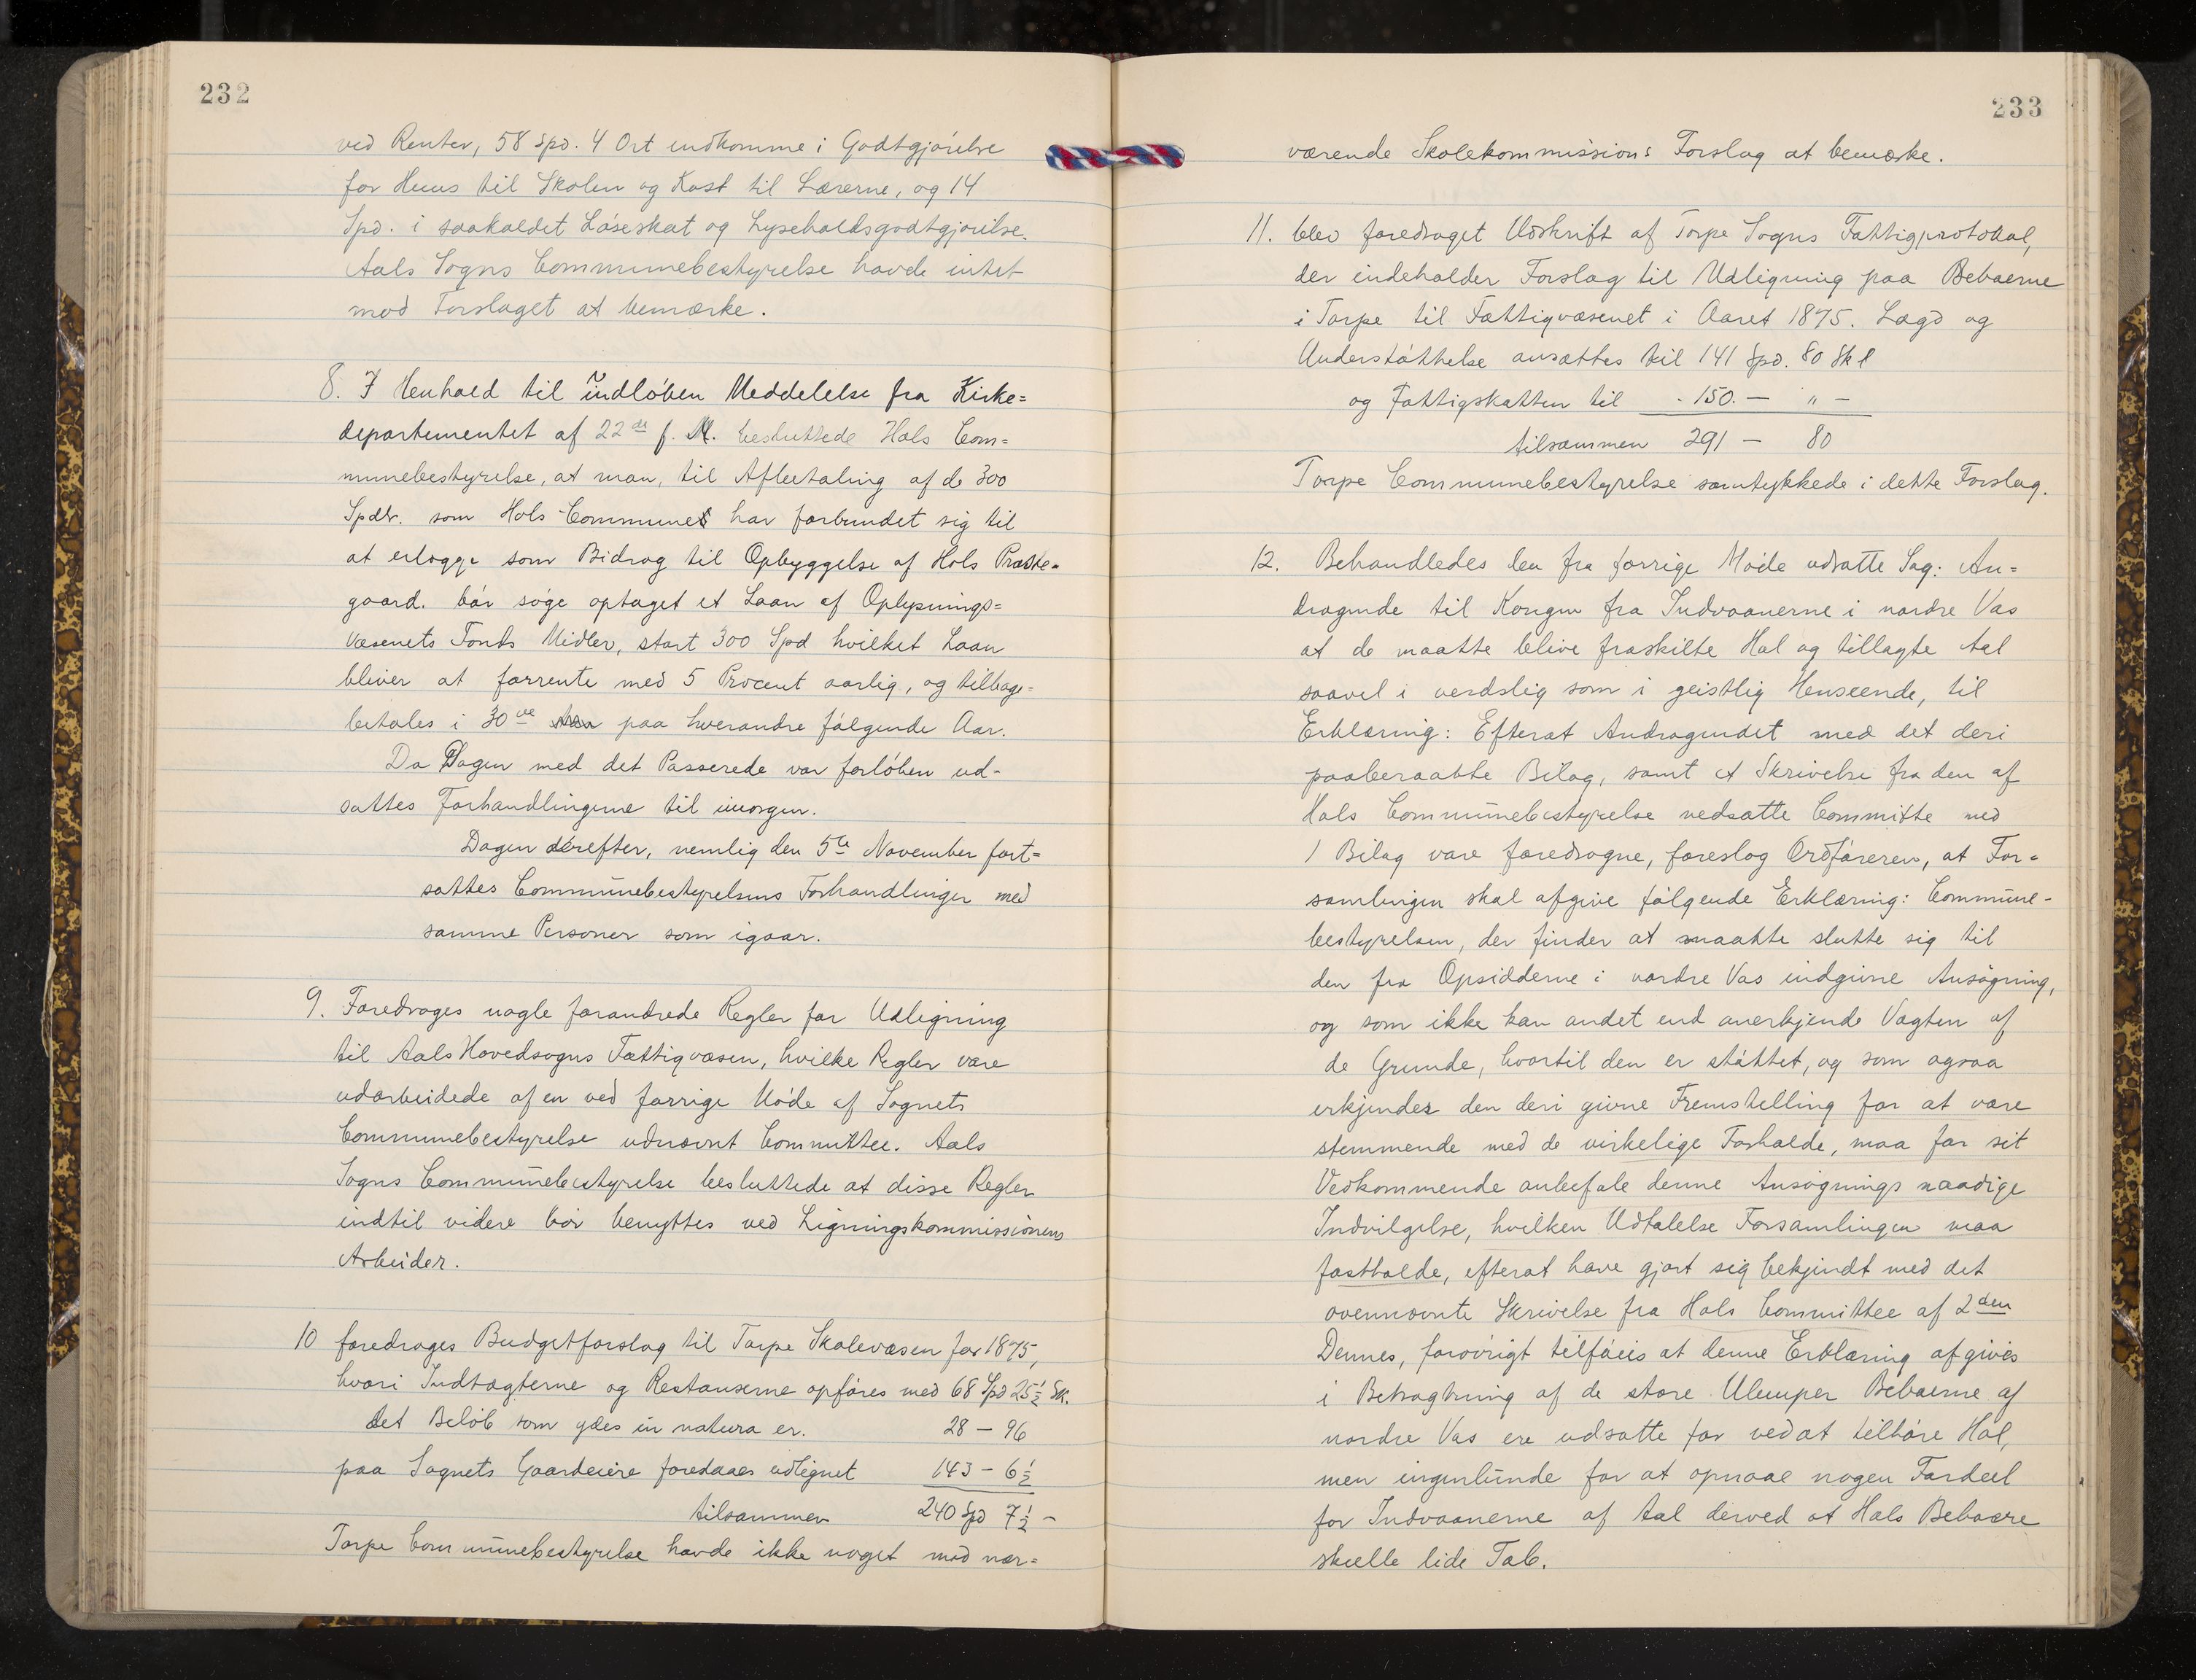 232
ved Renter, 58 Spd. 4 Ort indkomme i Godtgjørelse
for Huus til Skolen og Kost til Lærerne, og 14
Spd. i saakaldet Løseskat og Lyseholdsgodtgjørelse.
Aals Sogns Communebestyrelse havde intet
mod Forslaget at bemærke.
8. I Henhold til indløben Meddelelse fra Kirke=
departementet af 22de f. M. besluttede Hols Com=
munebestyrelse, at man, til Afbetaling af de 300
Spdlr. som Hols Commune har forbundet sig til
at erlægge som Bidrag til Opbyggelse af Hols Præste=
gaard. bør søge optaget et Laan af Oplysnings=
væsenets Fonds Midler, stort 300 Spd hvilket Laan
bliver at forrente med 5 Procent aarlig, og tilbage=
betales i 30ve paa hverandre følgende Aar.
Da Dagen med det Passerede var forløben ud-
sattes Forhandlingerne til imorgen.
Dagen derefter, nemlig den 5te November fort=
sattes Communebestyrelsens Forhandlinger med
samme Personer som igaar.
9. Foredroges nogle forandrede Regler for Udligning
til Aals Hovedsogns Fattigvæsen, hvilke Regler vare
udarbeidede af en ved forrige Møde af Sognets
Communebestyrelse udnævnt Committee. Aals
Sogns Communebestyrelse besluttede at disse Regler
indtil videre bør benyttes ved Ligningskommissionens
Arbeider.
10 foredroges Budgetforslag til Torpe Skolevæsen for 1875,
hvori Indtægterne og Restanserne opføres med 68 Spd 25½ Sk.
det Beløb som ydes in natura er. 28 – 96
paa Sognets Gaardeiere foredaaes udlignet 143 – 6½
tilsammen 240 Spd 7½ –
Torpe Communebestyrelse havde ikke noget mod nær=
233
værende Skolekommissions Forslag at bemærke.
11. blev foredraget Udskrift af Torpe Sogns Fattigprotokol,
der indeholder Forslag til Udligning paa Beboerne
i Torpe til Fattigvæsenet i Aaret 1875. Lægd og
Understøttelse ansættes til 141 Spd. 80 Sk l
og Fattigskatten til - 150. – " –
tilsammen 291 – 80
Torpe Communebestyrelse samtykkede i dette Forslag.
12. Behandledes den fra forrige Møde udsatte Sag: An=
dragende til Kongen fra Indvaanerne i nordre Vas
at de maatte blive fraskilte Hol og tillagte Aal
saavel i verdslig som i geistlig Henseende, til
Erklæring: Efterat Andragendet med det deri
paaberaabte Bilag, samt et Skrivelse fra den af
Hols Communebestyrelse nedsatte Committe med
1 Bilag vare foredragne, foreslog Ordføreren, at For=
samlingen skal afgive følgende Erklæring: Commune-
bestyrelsen, der finder at maatte slutte sig til
den fra Opsidderne i nordre Vas indgivne Ansøgning,
og som ikke kan andet end anerkjende Vægten af
de Grunde, hvortil den er støttet, og som ogsaa
erkjender den deri givne Fremstilling for at være
stemmende med de virkelige Forholde, maa for sit
Vedkommende anbefale denne Ansøgnings naadige
Indvilgelse, hvilken Udtalelse Forsamlingen maa
fastholde, efterat have gjort sig bekjendt med det
ovennævnte Skrivelse fra Hols Committee af 2den
Dennes, forøvrigt tilføies at denne Erklæring afgives
i Betragtning af de store Ulemper Beboerne af
nordre Vas ere udsatte for ved at tilhøre Hol,
men ingenlunde for at opnaae nogen Fordeel
for Indvaanerne af Aal derved at Hols Beboere
skulle lide Tab.